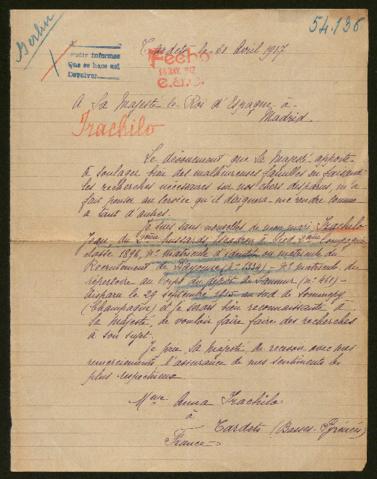 54.136
Berlin
Pedir informes
Que se hace así
Devolver
Fecho
Tardets le 30 Avril 1917
A Sa Majesté le Roi d'Espagne à
Madrid.
Irachilo
Le dévouement que Sa Majesté apporte
à soulager bien des malheureuses familles en faisant
les recherches nécessaires sur nos chers disparus, m'a
fait penser au service qu'il daignera me rendre comme
à tant d'autres.
Je suis sans nouvelles de mon mari, Irachilo
Jean, du
classe 1896, n° matricule
Recrutement de Bayonne n° 1334 n° matricule du
répertoire au Corps du dépôt de Saumur
disparu le 29 septembre 1915 au sud de Sommepy
(Champagne) et je serai bien reconnaissante à
Sa Majesté, de vouloir faire faire des recherches
à son sujet.
Je prie Sa Majesté de recevoir avec mes
remerciements l'assurance de mes sentiments les
plus respectueux
Mme Anna Irachilo
à
Tardets (Basses-Pyrénées)
France